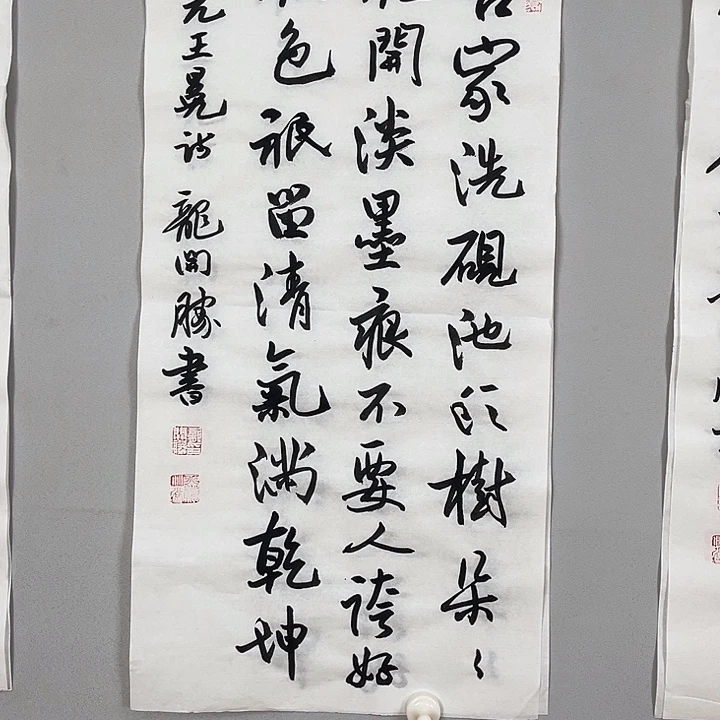 家洗硯池頭樹朵〻
開淡墨痕不要人誇好
色祇留清氣滿乾坤
元王冕詩 龍開勝書